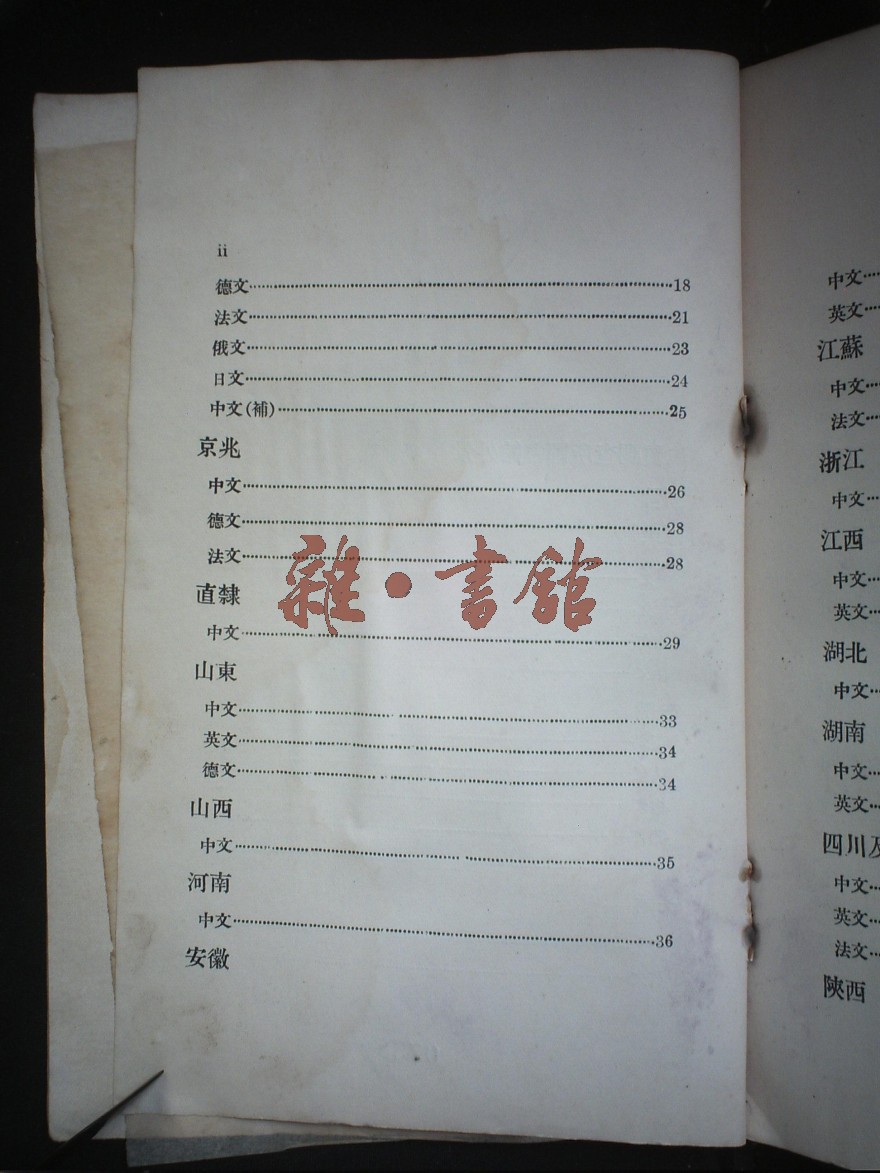 ii
德文……18
法文……21
俄文……23
日文……24
中文(補)……25
京兆
中文……26
德文……28
法文……28
直隸
中文……29
山東
中文……33
英文……34
德文……34
山西
中文……35
河南
中文……36
安徽
雜·書館
中文……
英文……
江蘇
中文……
法文……
浙江
中文……
江西
中文……
英文……
湖北
中文……
湖南
中文……
英文……
四川及
中文……
英文……
法文……
陝西